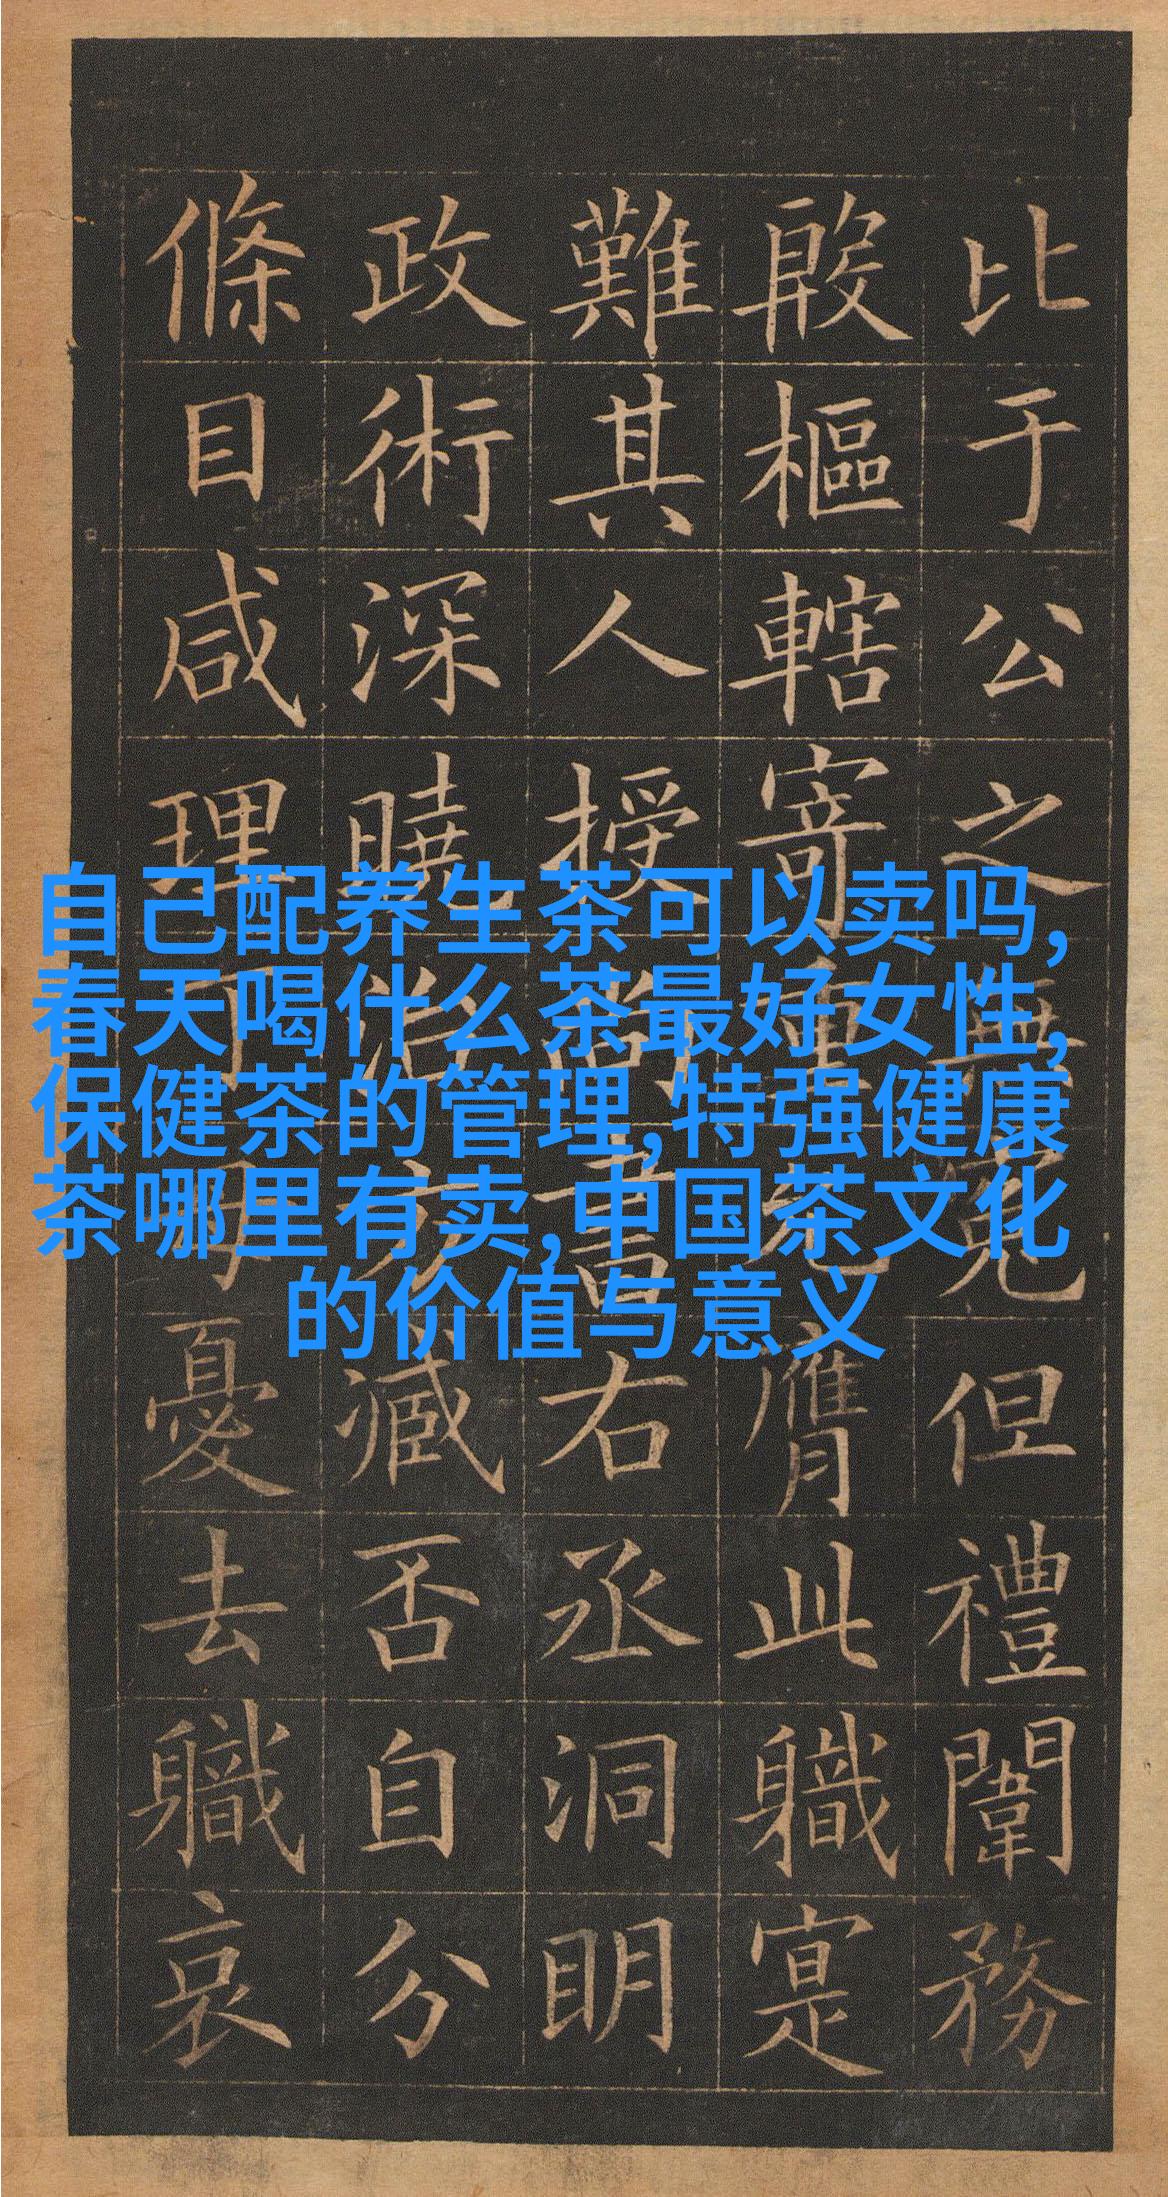 比于公之無冤但禮闈務
殷樞轄寄重允膺此職寔
難其人授尚書右丞洞明
政術深曉治方臧否自分
條目咸理丁母憂去職哀
自己配养生茶可以卖吗,
春天喝什么茶最好女性,
保健茶的管理,特强健康
茶哪里有卖,中国茶文化
的价值与意义